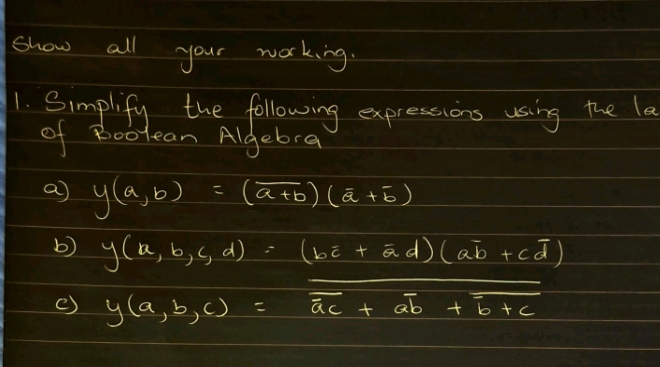 Show all your working.
1. Simplify the following expressions using the la
of Boolean Algebra
a) y(a,b) = (a̅+̅b̅)(ā + b̄)
b) y(a, b, c, d) = (bc̄ + ād)(ab̄ + cd̄)
c) y(a,b,c) = \overline{\overline{\bar{a}c} + a\bar{b} + \overline{\bar{b} + c}}